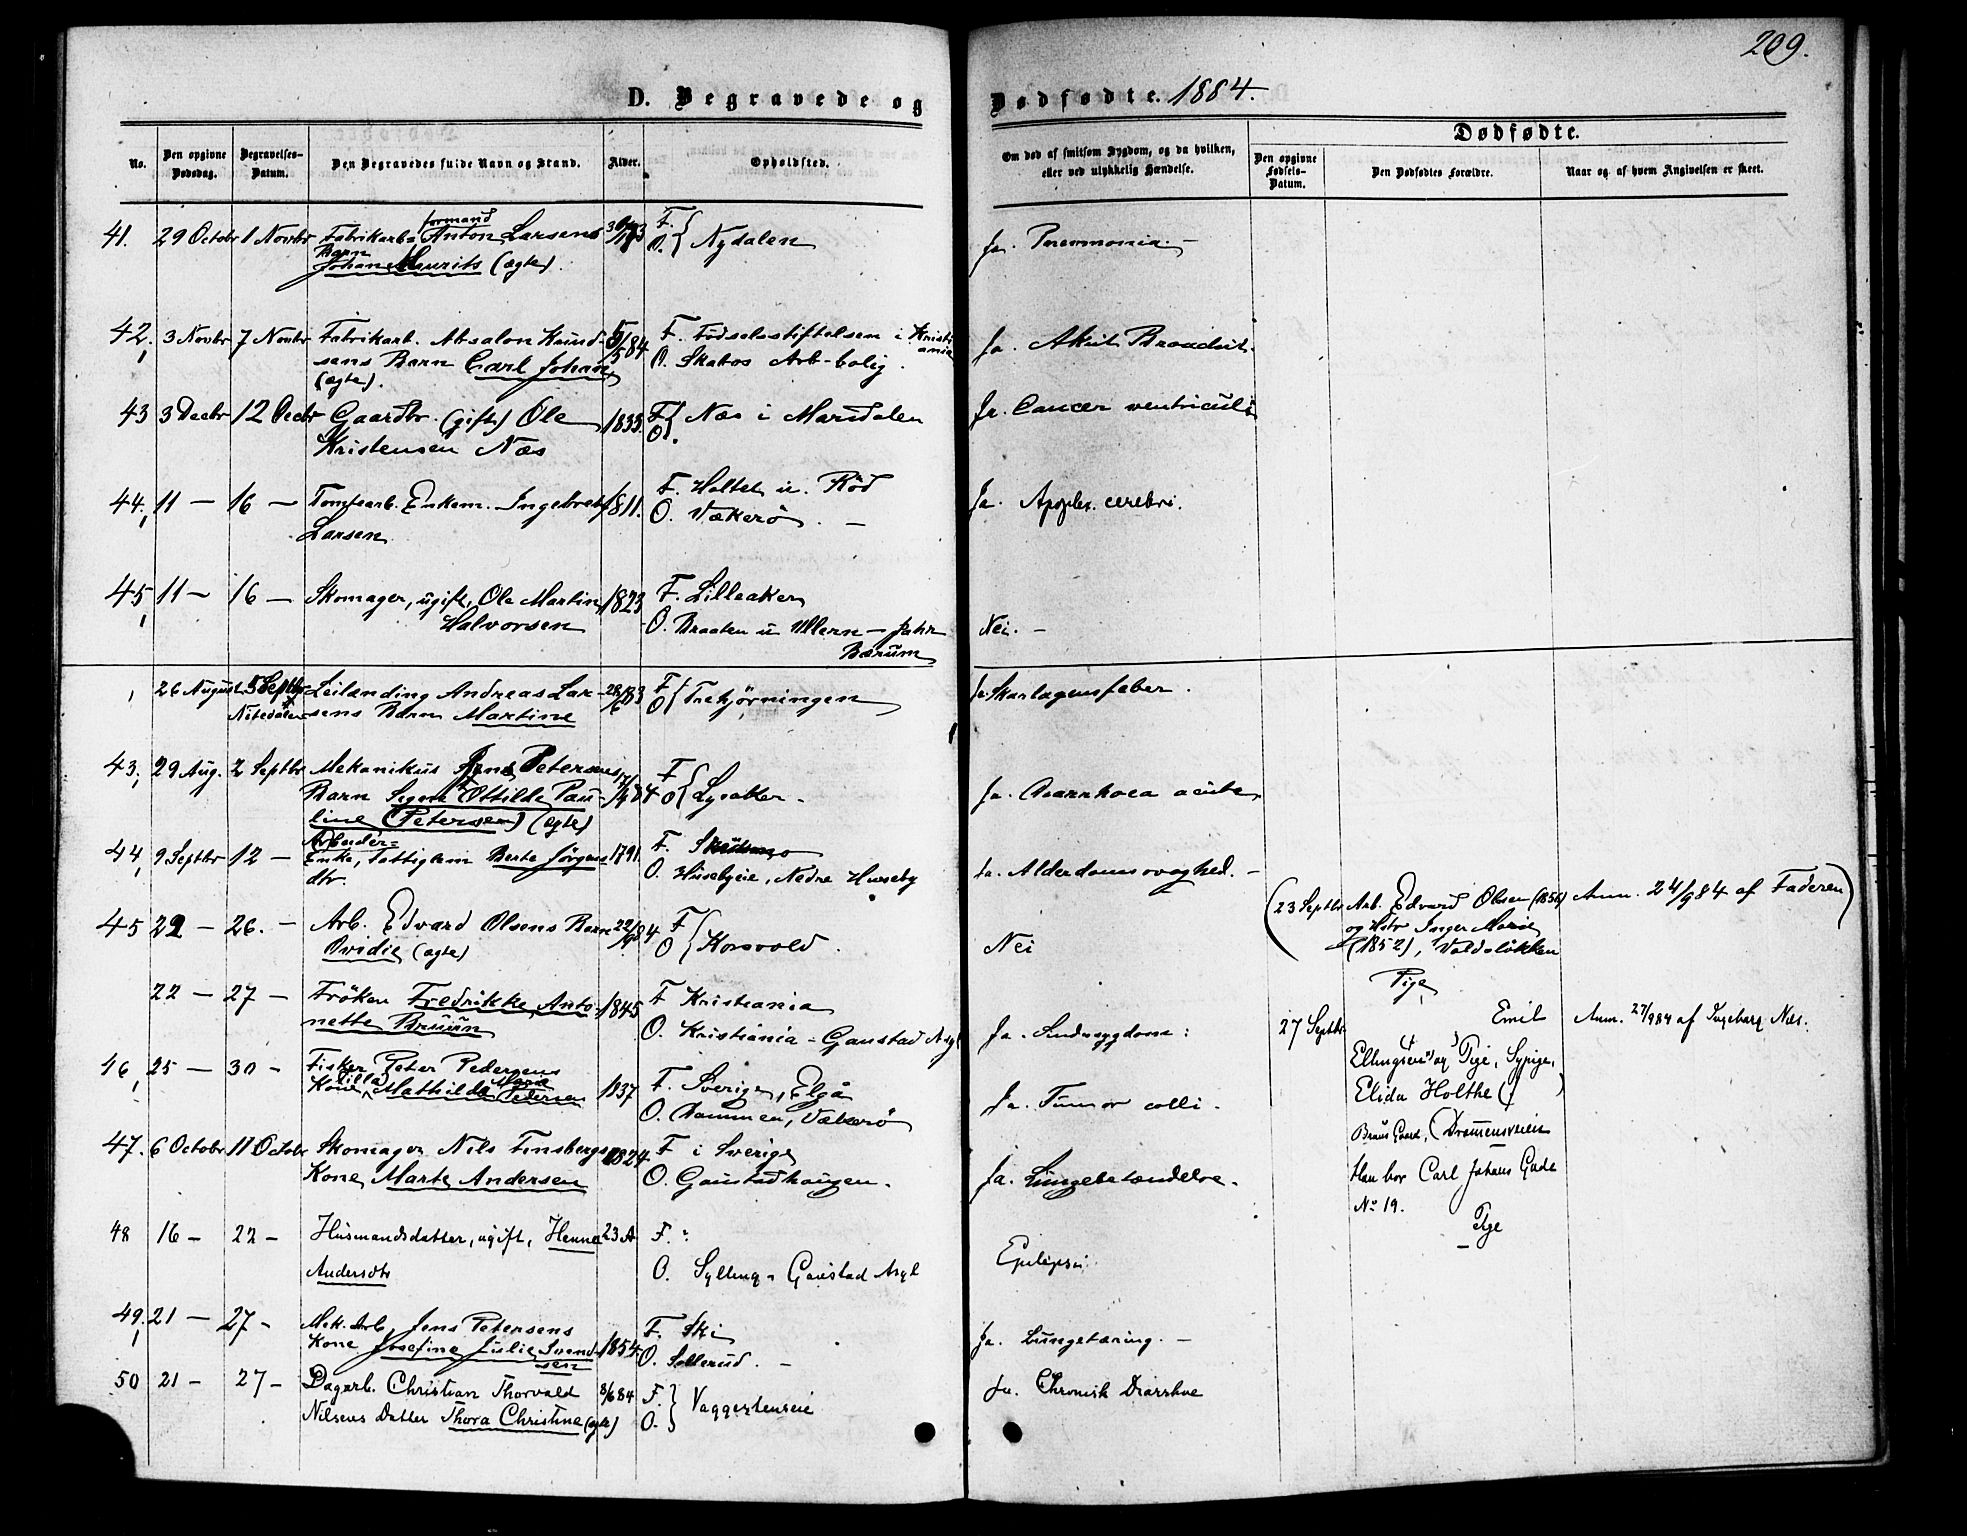 209.
D. Begravede og Dødfødte. 1884.
Dødfødte.
No.
Den opgivne Dødsdag.
Begravelses-Datum.
Den Begravedes fulde Navn og Stand.
Alder.
Opholdsted.
Om død af smitsom Sygdom, og da hvilken, eller ved ulykkelig Hændelse.
Den opgivne Fødsels-Datum.
Den Dødfødtes Forældre.
Naar og af hvem Angivelsen er skeet.
41. 29 Octobr 1 Novbr Fabrikarb. formand Anton Larsens F. O. { Nydalen Ja. Pneumonia. -
Barn
Johan Laurits (ægte).
42. 3 Novbr 7 Novbr Fabrikarb. Absalon Knud- 5/5 84 F. Fødselsstiftelsen i Kristiania
sens Barn Carl Johan O. Skabos Arb-bolig. Ja. Akut Bronchit.
(ægte).
43 3 Decbr 12 Decbr Gaardbr. (gift) Ole 1833. F O { Næs i Maridalen Ja. Cancer ventriculi
Kristensen Næs
44. 11 - 16 - Tomtearb. Enkem. Ingebret 1811. F. Holtet u. Röd Ja. Apoplex. cerebri.
Larsen O. Vækerö. -
45, 11 - 16 - Skomager, ugift, Ole Martin 1823 F. Lilleaker
Halvorsen O. Braaten u Ullern - Jahr Nei. -
Bærum
26 August 5 Septbr Leilænding Andreas Lar- 28/6 83 F O { Trehjørningen Ja. Skarlagensfeber.
Nitedalen sens Barn Martine
43, 29 Aug. 2 Septbr Mekanikus Jens Petersens F O { Lysaker. Ja. Diarrhoea acuta
Barn Signe Ottilde Pau-
line (Petersen) (ægte)
44, 9 Septbr 12 - Arbeider= F.
Enke, Fattiglem Berte Jørgens- 1791. O. Husebyeie, Nedre Huseby Ja. Alderdomssvaghed. -
dtr.
45 22 - 26. - Arb. Edvard Olsens Barn 22/9 84 F O { Korsvold. Nei
Ovidie (ægte)
(23 Septbr Arb. Edvard Olsen (1856) Anm. 24/9 84 af Faderen)
og Hstr Inger Marie
(1852), Voldsløkken
Pige
22 - 27 - Frøken Fredrikke Anto- 1845 F Kristiania
nette Bruun O. Kristiania - Gaustad Asyl Ja. Sindssygdom:
27 Septbr Emil Anm. 27/9 84 af Ingeborg Næs.
Ellingsen og Pige, Sypige,
Elida Holthe
Braus Gaard, (Dramensveien
Han bor Carl Johans Gade
No 19.
Pige
46, 25 - 30 - Fisker Peter Pedersens
Kone Milla Mathilde Marie Pedersen 1837 F. Sverige, Elgå
O. Dammen, Vækerö Ja. Tumor colli.
47. 6 Octobr 11 Octobr Skomager Nils Finsbergs 1824 F i Sverige
Kone Marte Andersen O. Gaustadhaugen. Ja. Lungebetændelse.
48 16 - 22 - Husmandsdatter, ugift, Henna 23 A F. "
Andersdtr O. Sylling - Gaustad Asyl Epilepsi.
49. 21 - 27 - Mek. Arb. Jens Petersens F. Ski
Kone Josefine Julie Svend- 1854. O. Sollerud. - Ja. Lungetæring. -
sen
50 21 - 27 - Dagarb. Christian Thorvald 8/6 84 F. O. } Vaggestenseie Ja. Chronisk Diarrhoe
Nilsens Datter Thora Christine (ægte)